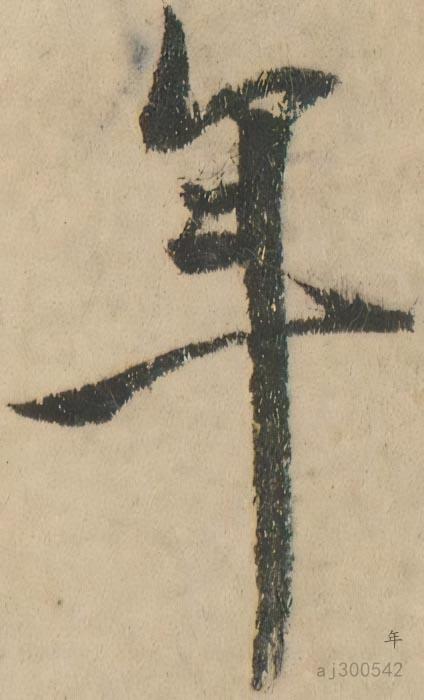 年
年
aj300542